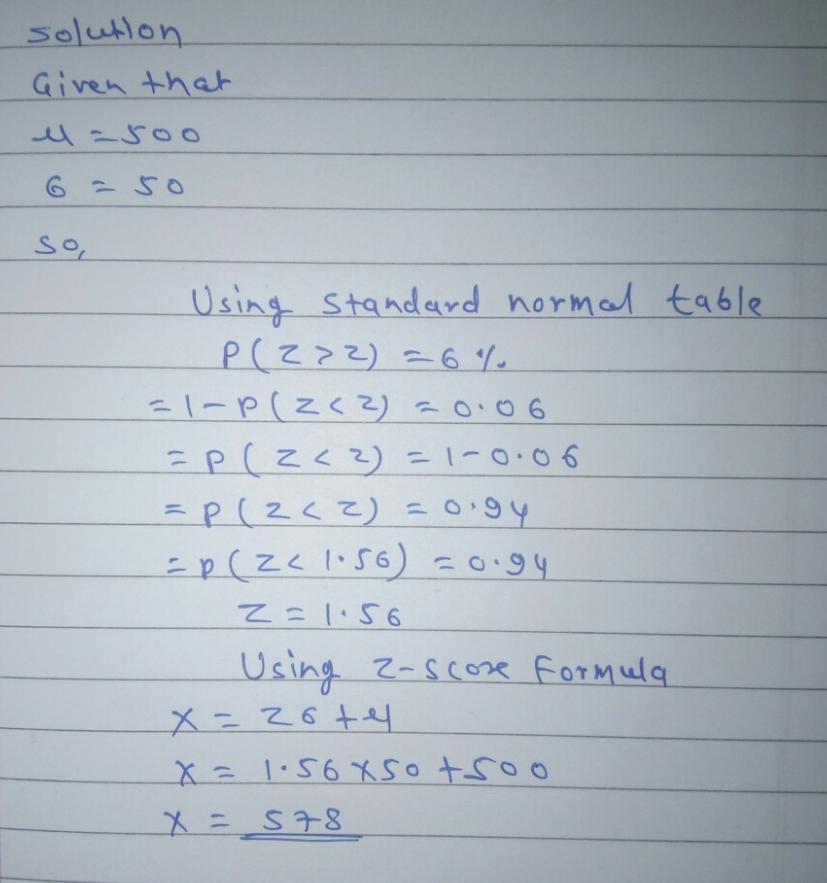 Solution
Given that
μ = 500
σ = 50
so,
Using standard normal table
P(Z > z) = 6 %
= 1 - P(Z < z) = 0.06
= P(Z < z) = 1 - 0.06
= P(Z < z) = 0.94
= P(Z < 1.56) = 0.94
z = 1.56
Using z-score Formula
X = zσ + μ
X = 1.56 × 50 + 500
X = 578